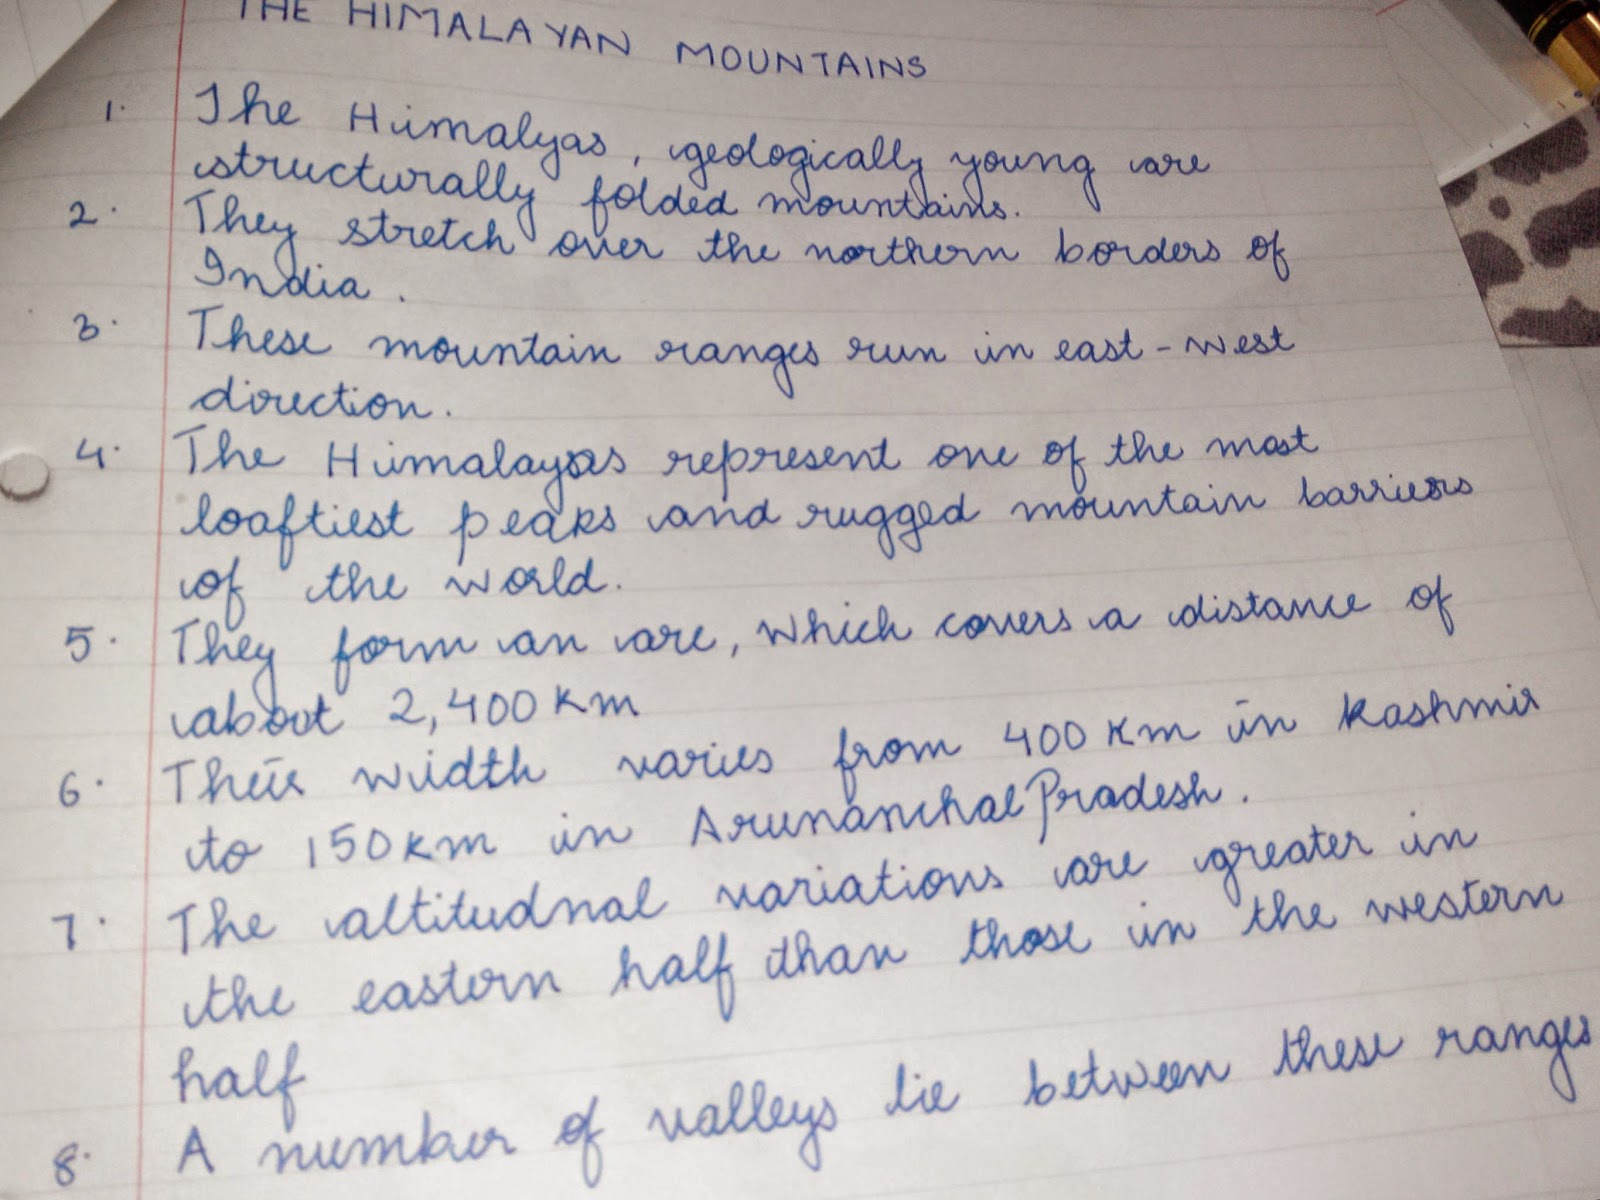 THE HIMALAYAN MOUNTAINS
1. The Himalyas, geologically young are
structurally folded mountains.
2. They stretch over the northern borders of
India.
3. These mountain ranges run in east-west
direction.
4. The Himalayas represent one of the most
loaftiest peaks and rugged mountain barriers
of the world.
5. They form an arc, which covers a distance of
about 2,400 km
6. Their width varies from 400 km in Kashmir
to 150 km in Arunanchal Pradesh.
7. The altitudnal variations are greater in
the eastern half than those in the western
half
8. A number of valleys lie between these ranges